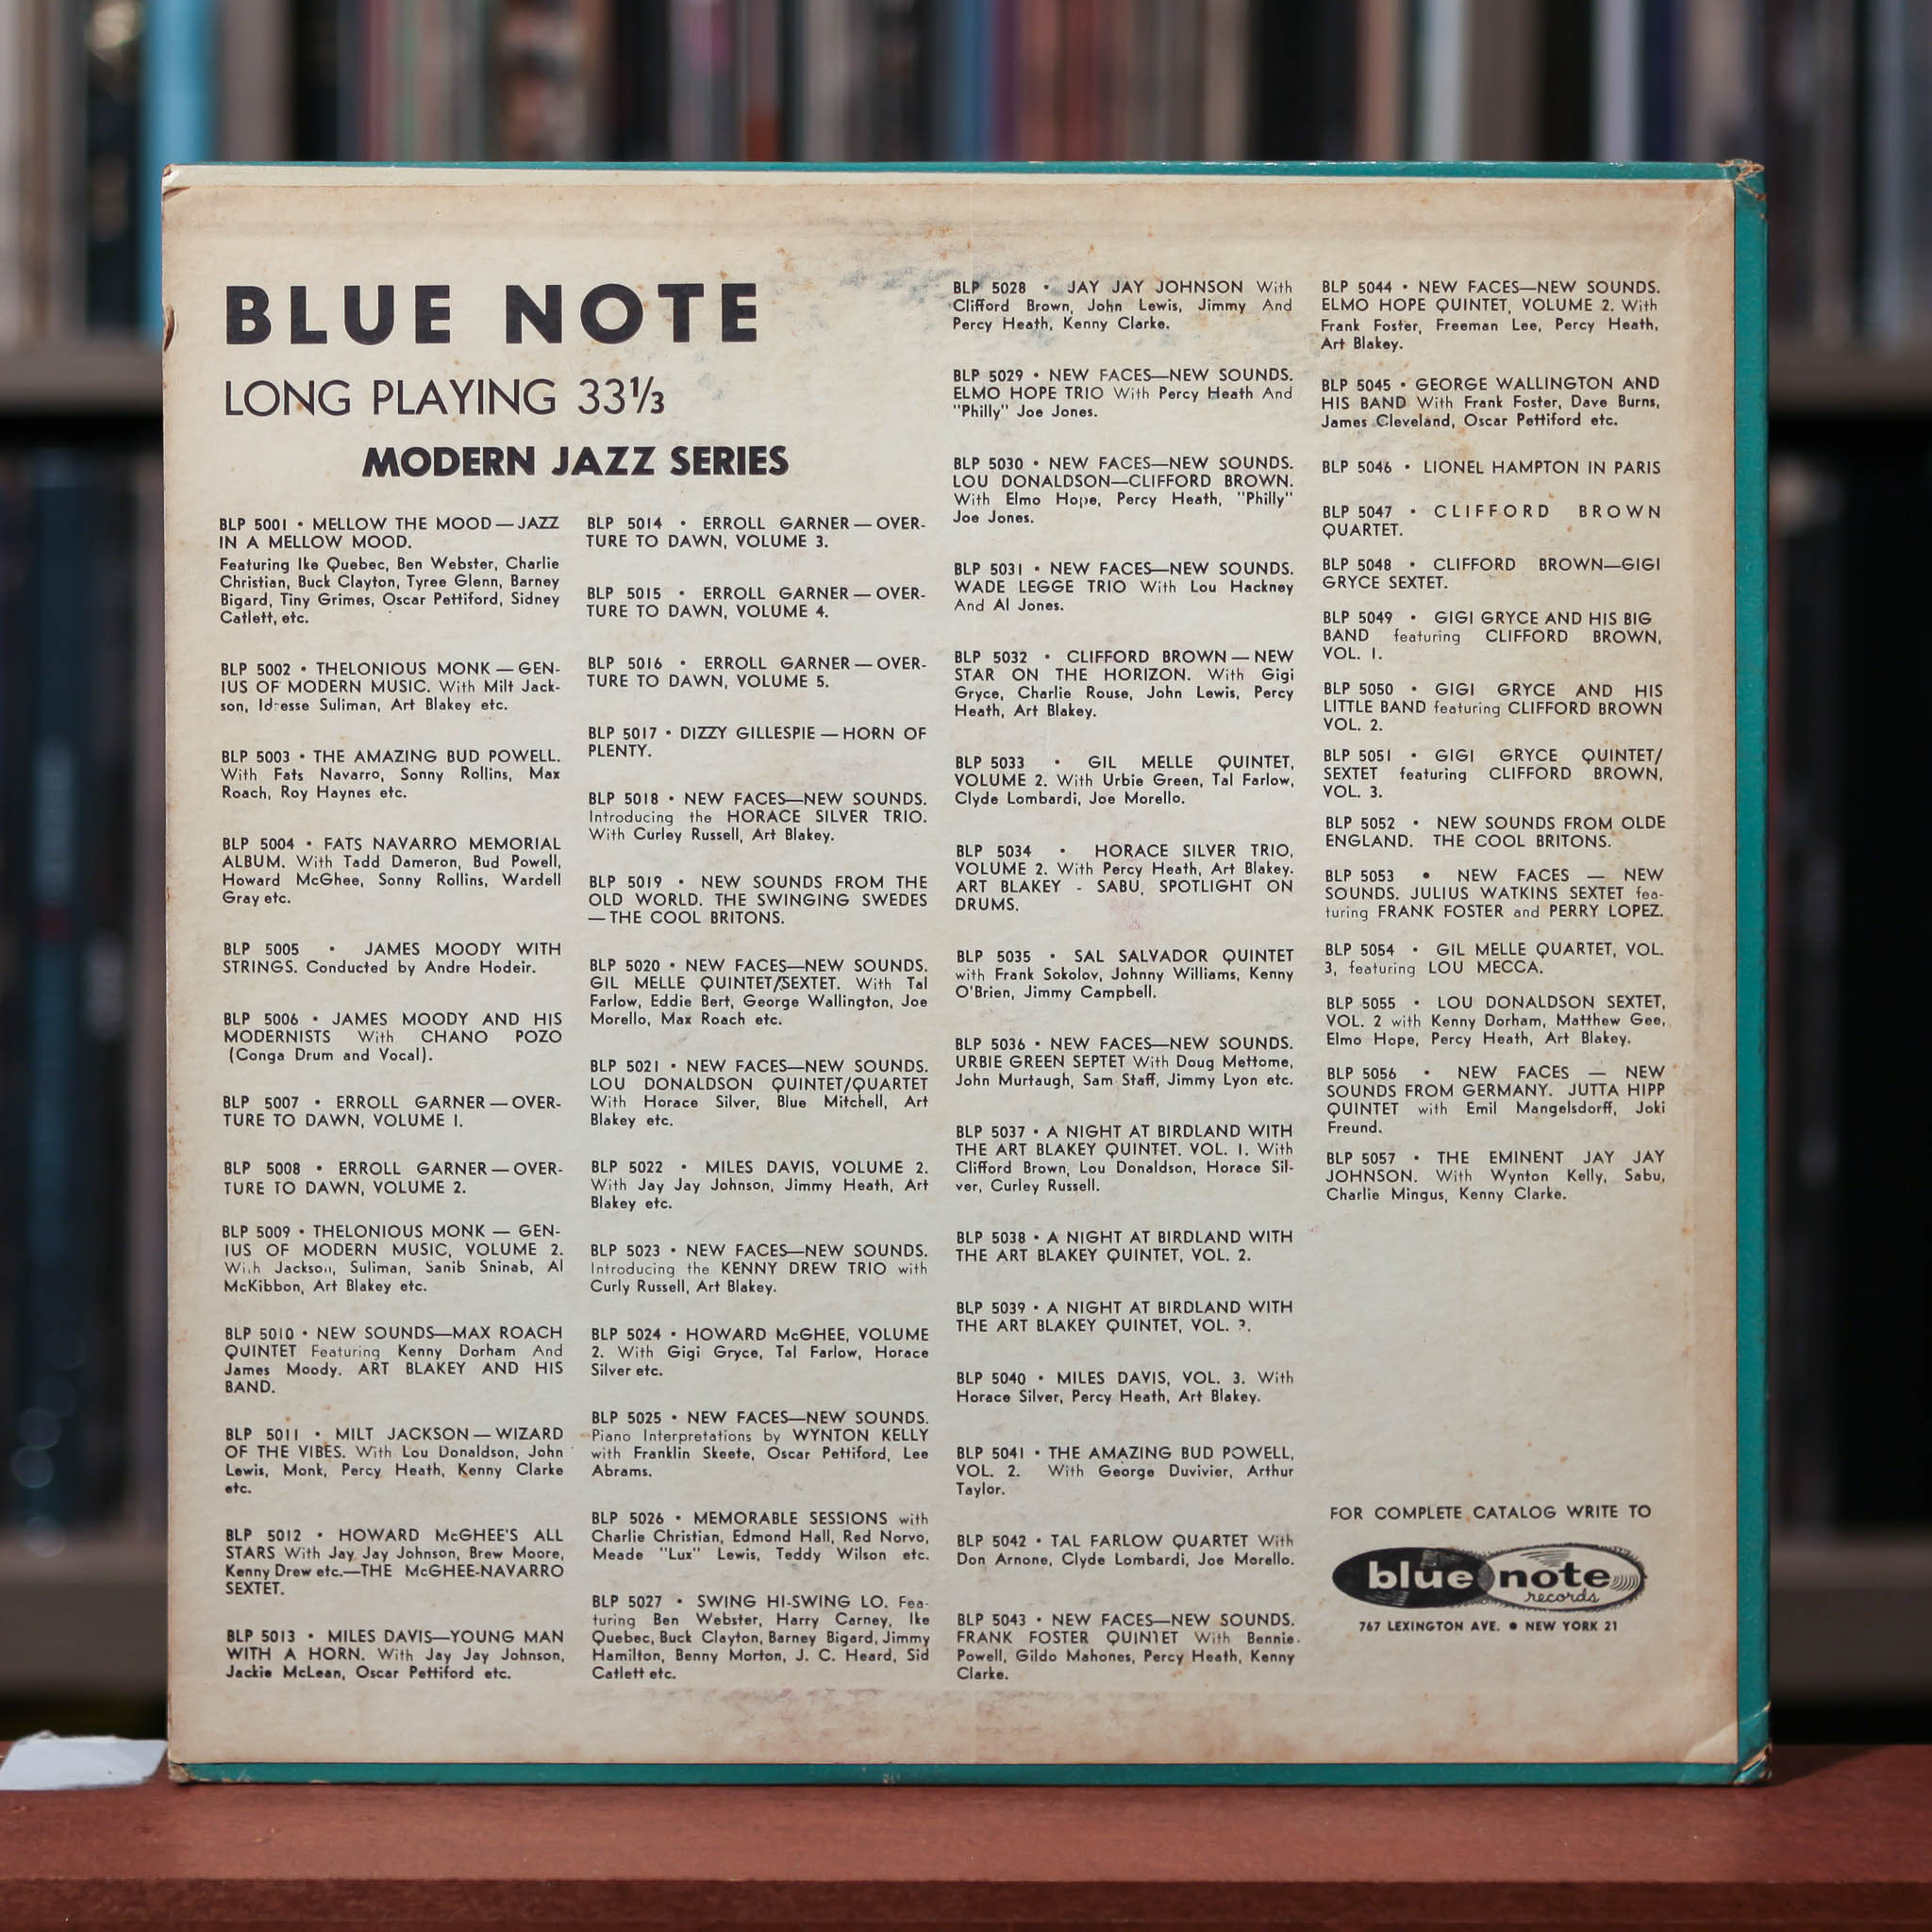 BLUE NOTE
LONG PLAYING 33⅓
MODERN JAZZ SERIES
BLP 5001 • MELLOW THE MOOD — JAZZ
IN A MELLOW MOOD.
Featuring Ike Quebec, Ben Webster, Charlie
Christian, Buck Clayton, Tyree Glenn, Barney
Bigard, Tiny Grimes, Oscar Pettiford, Sidney
Catlett, etc.
BLP 5002 • THELONIOUS MONK — GEN-
IUS OF MODERN MUSIC. With Milt Jack-
son, Idresse Suliman, Art Blakey etc.
BLP 5003 • THE AMAZING BUD POWELL.
With Fats Navarro, Sonny Rollins, Max
Roach, Roy Haynes etc.
BLP 5004 • FATS NAVARRO MEMORIAL
ALBUM. With Tadd Dameron, Bud Powell,
Howard McGhee, Sonny Rollins, Wardell
Gray etc.
BLP 5005 • JAMES MOODY WITH
STRINGS. Conducted by Andre Hodeir.
BLP 5006 • JAMES MOODY AND HIS
MODERNISTS With CHANO POZO
(Conga Drum and Vocal).
BLP 5007 • ERROLL GARNER — OVER-
TURE TO DAWN, VOLUME I.
BLP 5008 • ERROLL GARNER — OVER-
TURE TO DAWN, VOLUME 2.
BLP 5009 • THELONIOUS MONK — GEN-
IUS OF MODERN MUSIC, VOLUME 2.
With Jackson, Suliman, Sanib Sninab, Al
McKibbon, Art Blakey etc.
BLP 5010 • NEW SOUNDS—MAX ROACH
QUINTET Featuring Kenny Dorham And
James Moody. ART BLAKEY AND HIS
BAND.
BLP 5011 • MILT JACKSON — WIZARD
OF THE VIBES. With Lou Donaldson, John
Lewis, Monk, Percy Heath, Kenny Clarke
etc.
BLP 5012 • HOWARD McGHEE'S ALL
STARS With Jay Jay Johnson, Brew Moore,
Kenny Drew etc.—THE McGHEE-NAVARRO
SEXTET.
BLP 5013 • MILES DAVIS—YOUNG MAN
WITH A HORN. With Jay Jay Johnson,
Jackie McLean, Oscar Pettiford etc.
BLP 5014 • ERROLL GARNER — OVER-
TURE TO DAWN, VOLUME 3.
BLP 5015 • ERROLL GARNER — OVER-
TURE TO DAWN, VOLUME 4.
BLP 5016 • ERROLL GARNER — OVER-
TURE TO DAWN, VOLUME 5.
BLP 5017 • DIZZY GILLESPIE — HORN OF
PLENTY.
BLP 5018 • NEW FACES—NEW SOUNDS.
Introducing the HORACE SILVER TRIO.
With Curley Russell, Art Blakey.
BLP 5019 • NEW SOUNDS FROM THE
OLD WORLD. THE SWINGING SWEDES
— THE COOL BRITONS.
BLP 5020 • NEW FACES—NEW SOUNDS.
GIL MELLE QUINTET/SEXTET. With Tal
Farlow, Eddie Bert, George Wallington, Joe
Morello, Max Roach etc.
BLP 5021 • NEW FACES—NEW SOUNDS.
LOU DONALDSON QUINTET/QUARTET
With Horace Silver, Blue Mitchell, Art
Blakey etc.
BLP 5022 • MILES DAVIS, VOLUME 2.
With Jay Jay Johnson, Jimmy Heath, Art
Blakey etc.
BLP 5023 • NEW FACES—NEW SOUNDS.
Introducing the KENNY DREW TRIO with
Curly Russell, Art Blakey.
BLP 5024 • HOWARD McGHEE, VOLUME
2. With Gigi Gryce, Tal Farlow, Horace
Silver etc.
BLP 5025 • NEW FACES—NEW SOUNDS.
Piano Interpretations by WYNTON KELLY
with Franklin Skeete, Oscar Pettiford, Lee
Abrams.
BLP 5026 • MEMORABLE SESSIONS with
Charlie Christian, Edmond Hall, Red Norvo,
Meade "Lux" Lewis, Teddy Wilson etc.
BLP 5027 • SWING HI-SWING LO. Fea-
turing Ben Webster, Harry Carney, Ike
Quebec, Buck Clayton, Barney Bigard, Jimmy
Hamilton, Benny Morton, J. C. Heard, Sid
Catlett etc.
BLP 5028 • JAY JAY JOHNSON With
Clifford Brown, John Lewis, Jimmy And
Percy Heath, Kenny Clarke.
BLP 5029 • NEW FACES—NEW SOUNDS.
ELMO HOPE TRIO With Percy Heath And
"Philly" Joe Jones.
BLP 5030 • NEW FACES—NEW SOUNDS.
LOU DONALDSON—CLIFFORD BROWN.
With Elmo Hope, Percy Heath, "Philly"
Joe Jones.
BLP 5031 • NEW FACES—NEW SOUNDS.
WADE LEGGE TRIO With Lou Hackney
And Al Jones.
BLP 5032 • CLIFFORD BROWN — NEW
STAR ON THE HORIZON. With Gigi
Gryce, Charlie Rouse, John Lewis, Percy
Heath, Art Blakey.
BLP 5033 • GIL MELLE QUINTET,
VOLUME 2. With Urbie Green, Tal Farlow,
Clyde Lombardi, Joe Morello.
BLP 5034 • HORACE SILVER TRIO,
VOLUME 2. With Percy Heath, Art Blakey.
ART BLAKEY - SABU, SPOTLIGHT ON
DRUMS.
BLP 5035 • SAL SALVADOR QUINTET
with Frank Sokolov, Johnny Williams, Kenny
O'Brien, Jimmy Campbell.
BLP 5036 • NEW FACES—NEW SOUNDS.
URBIE GREEN SEPTET With Doug Mettome,
John Murtaugh, Sam Staff, Jimmy Lyon etc.
BLP 5037 • A NIGHT AT BIRDLAND WITH
THE ART BLAKEY QUINTET. VOL. I. With
Clifford Brown, Lou Donaldson, Horace Sil-
ver, Curley Russell.
BLP 5038 • A NIGHT AT BIRDLAND WITH
THE ART BLAKEY QUINTET, VOL. 2.
BLP 5039 • A NIGHT AT BIRDLAND WITH
THE ART BLAKEY QUINTET, VOL.
BLP 5040 • MILES DAVIS, VOL. 3. With
Horace Silver, Percy Heath, Art Blakey.
BLP 5041 • THE AMAZING BUD POWELL,
VOL. 2. With George Duvivier, Arthur
Taylor.
BLP 5042 • TAL FARLOW QUARTET With
Don Arnone, Clyde Lombardi, Joe Morello.
BLP 5043 • NEW FACES—NEW SOUNDS.
FRANK FOSTER QUINTET With Bennie
Powell, Gildo Mahones, Percy Heath, Kenny
Clarke.
BLP 5044 • NEW FACES—NEW SOUNDS.
ELMO HOPE QUINTET, VOLUME 2. With
Frank Foster, Freeman Lee, Percy Heath,
Art Blakey.
BLP 5045 • GEORGE WALLINGTON AND
HIS BAND With Frank Foster, Dave Burns,
James Cleveland, Oscar Pettiford etc.
BLP 5046 • LIONEL HAMPTON IN PARIS
BLP 5047 • CLIFFORD BROWN
QUARTET.
BLP 5048 • CLIFFORD BROWN—GIGI
GRYCE SEXTET.
BLP 5049 • GIGI GRYCE AND HIS BIG
BAND featuring CLIFFORD BROWN,
VOL. I.
BLP 5050 • GIGI GRYCE AND HIS
LITTLE BAND featuring CLIFFORD BROWN
VOL. 2.
BLP 5051 • GIGI GRYCE QUINTET/
SEXTET featuring CLIFFORD BROWN,
VOL. 3.
BLP 5052 • NEW SOUNDS FROM OLDE
ENGLAND. THE COOL BRITONS.
BLP 5053 • NEW FACES — NEW
SOUNDS. JULIUS WATKINS SEXTET fea-
turing FRANK FOSTER and PERRY LOPEZ.
BLP 5054 • GIL MELLE QUARTET, VOL.
3, featuring LOU MECCA.
BLP 5055 • LOU DONALDSON SEXTET,
VOL. 2 with Kenny Dorham, Matthew Gee,
Elmo Hope, Percy Heath, Art Blakey.
BLP 5056 • NEW FACES — NEW
SOUNDS FROM GERMANY. JUTTA HIPP
QUINTET with Emil Mangelsdorff, Joki
Freund.
BLP 5057 • THE EMINENT JAY JAY
JOHNSON. With Wynton Kelly, Sabu,
Charlie Mingus, Kenny Clarke.
FOR COMPLETE CATALOG WRITE TO
blue note
records
767 LEXINGTON AVE. • NEW YORK 21